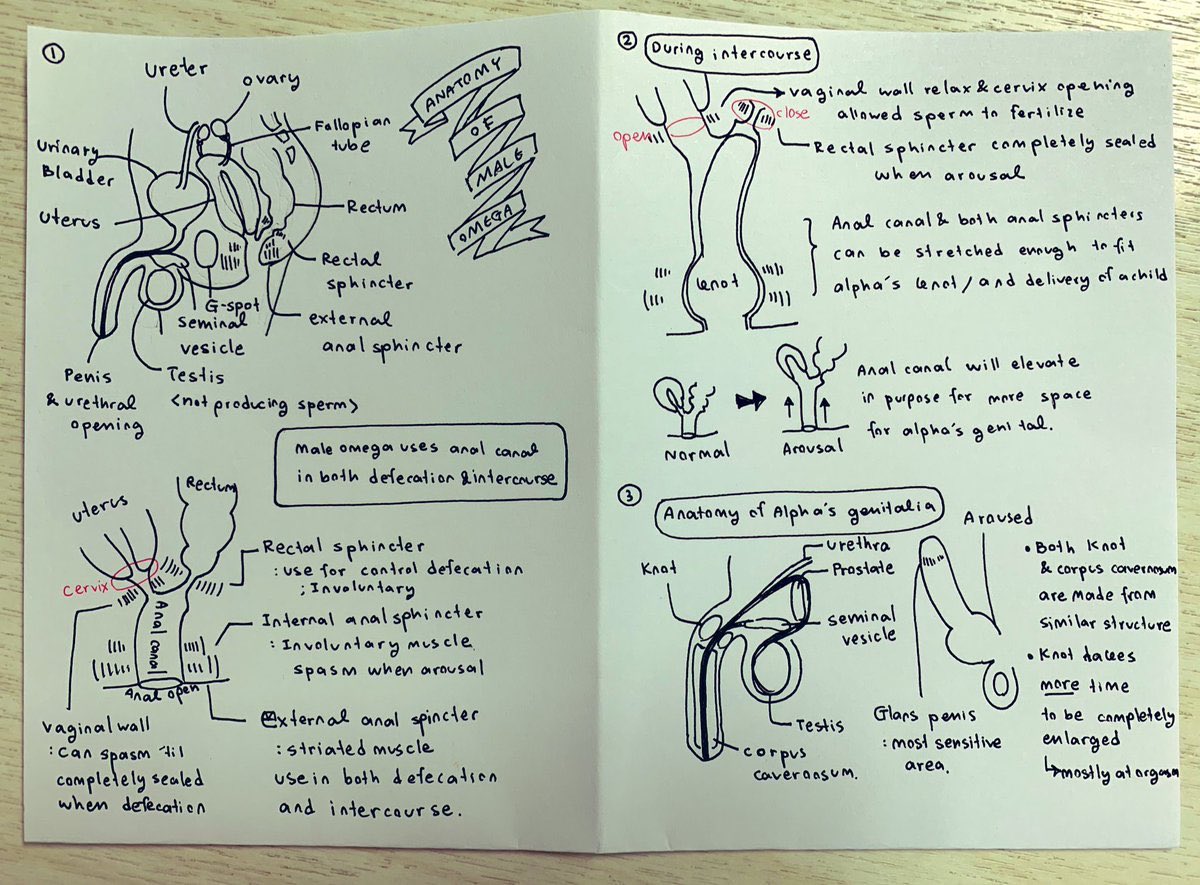 ①
ureter
ovary
ANATOMY
OF
MALE
OMEGA
Fallopian
tube
urinary
Bladder
uterus
Rectum
Rectal
sphincter
G-spot
seminal
vesicle
external
anal sphincter
Penis
& urethral
opening
Testis
<not producing sperm>
Male omega uses anal canal
in both defecation & intercourse
uterus
Rectum
cervix
Anal canal
Anal open
Rectal sphincter
: use for control defecation
; Involuntary
Internal anal sphincter
: Involuntary muscle
spasm when arousal
vaginal wall
: can spasm 'til
completely sealed
when defecation
external anal spincter
: striated muscle
use in both defecation
and intercourse.
②
During intercourse
vaginal wall relax & cervix opening
allowed sperm to fertilize
open
close
Rectal sphincter completely sealed
when arousal
knot
Anal canal & both anal sphincters
can be stretched enough to fit
alpha's knot / and delivery of a child
Normal
Arousal
Anal canal will elevate
in purpose for more space
for alpha's genital.
③
Anatomy of Alpha's genitalia
Knot
urethra
Prostate
seminal
vesicle
Testis
corpus
cavernosum.
Aroused
Glans penis
: most sensitive
area.
• Both Knot
& corpus cavernosum
are made from
similar structure
• Knot takes
more time
to be completely
enlarged
↳mostly at orgasm